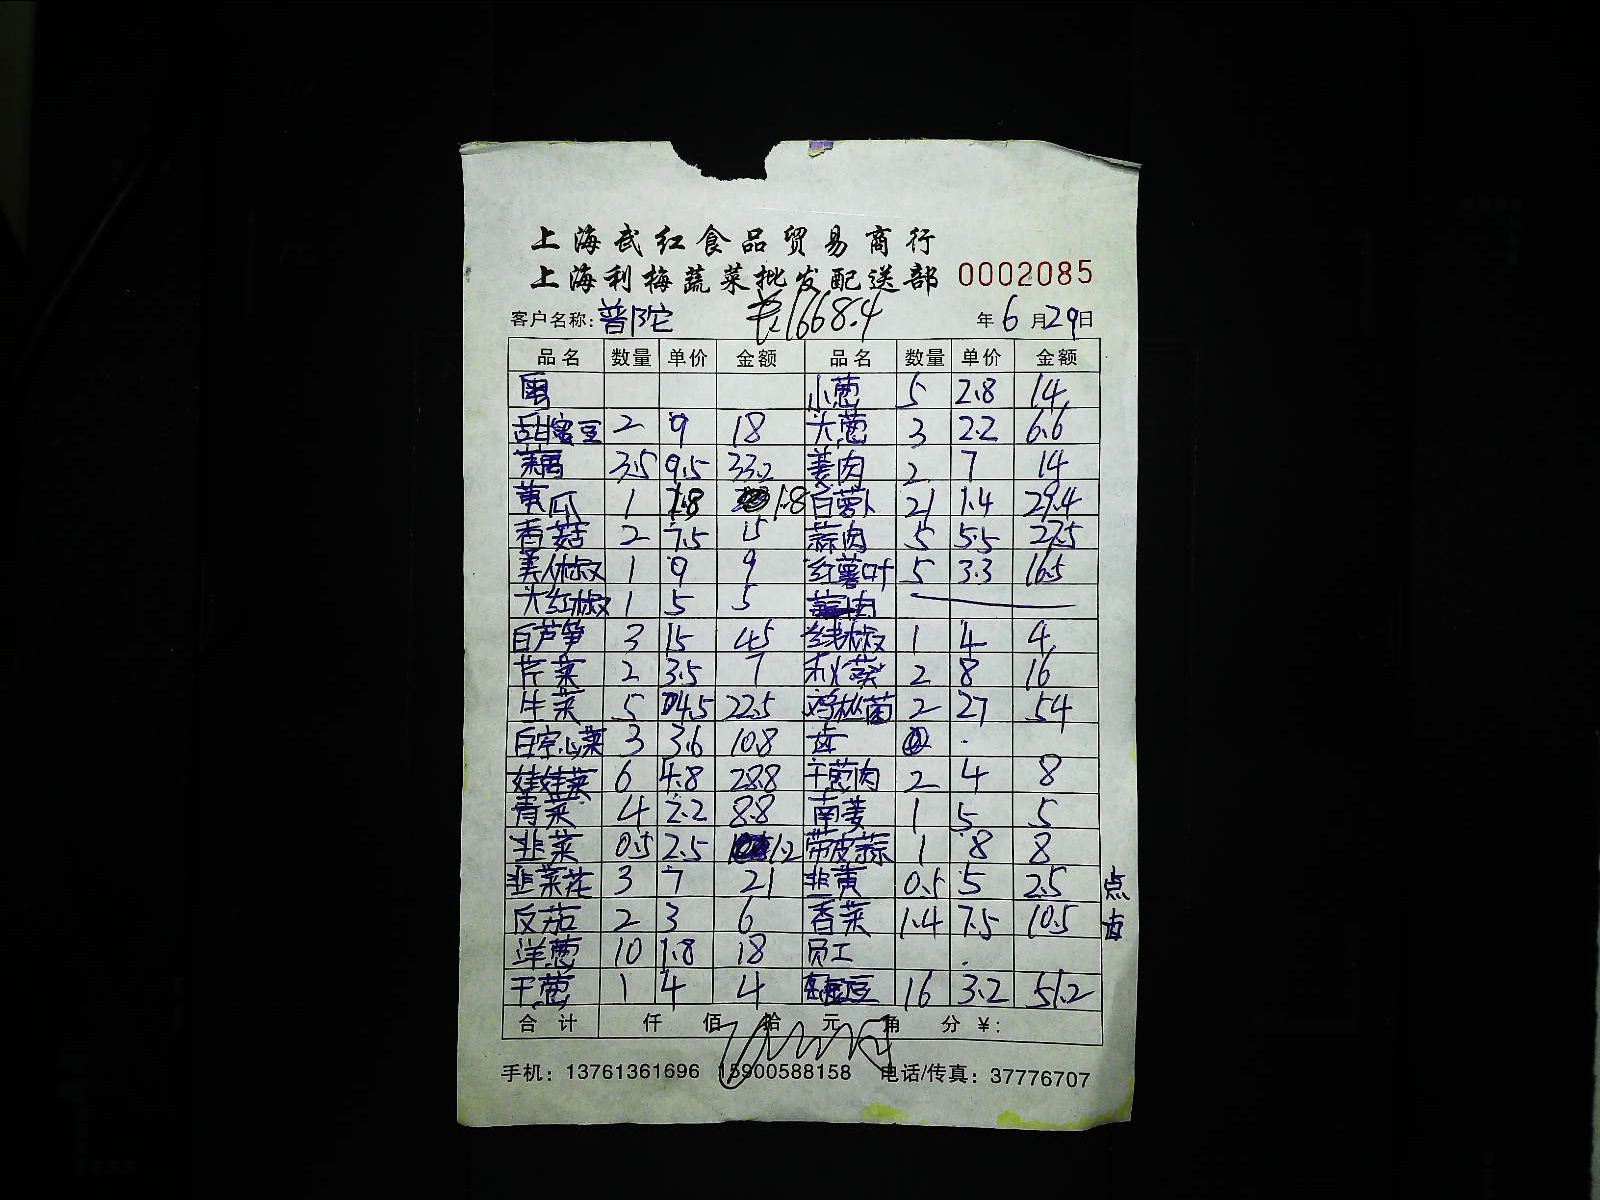 上海武红食品贸易商行
上海利梅蔬菜批发配送部 0002085
客户名称: 普陀 1668.4 年 6 月 29 日
品名 数量 单价 金额 品名 数量 单价 金额
小葱 5 2.8 14
甜蜜豆 2 9 18 大葱 3 2.2 6.6
藕 3.5 9.5 33.2 姜肉 2 7 14
黄瓜 1 1.8 1.8 白萝卜 21 1.4 29.4
香菇 2 7.5 15 蒜肉 5 5.5 27.5
美人椒 1 9 9 红薯叶 5 3.3 16.5
大红椒 1 5 5
白芦笋 3 15 45 线椒 1 4 4
芹菜 2 3.5 7 秋葵 2 8 16
生菜 5 4.5 22.5 鸡枞菌 2 27 54
白空心菜 3 3.6 10.8
娃娃菜 6 4.8 28.8 干葱肉 2 4 8
青菜 4 2.2 8.8 南姜 1 5 5
韭菜 0.5 2.5 1.2 带皮蒜 1 8 8
韭菜花 3 7 21 韭黄 0.5 5 2.5 点
反茄 2 3 6 香菜 1.4 7.5 10.5
洋葱 10 1.8 18 员工
干葱 1 4 4 豆 16 3.2 51.2
合计 仟 佰 拾 元 角 分 ¥:
手机: 13761361696 15900588158 电话/传真: 37776707